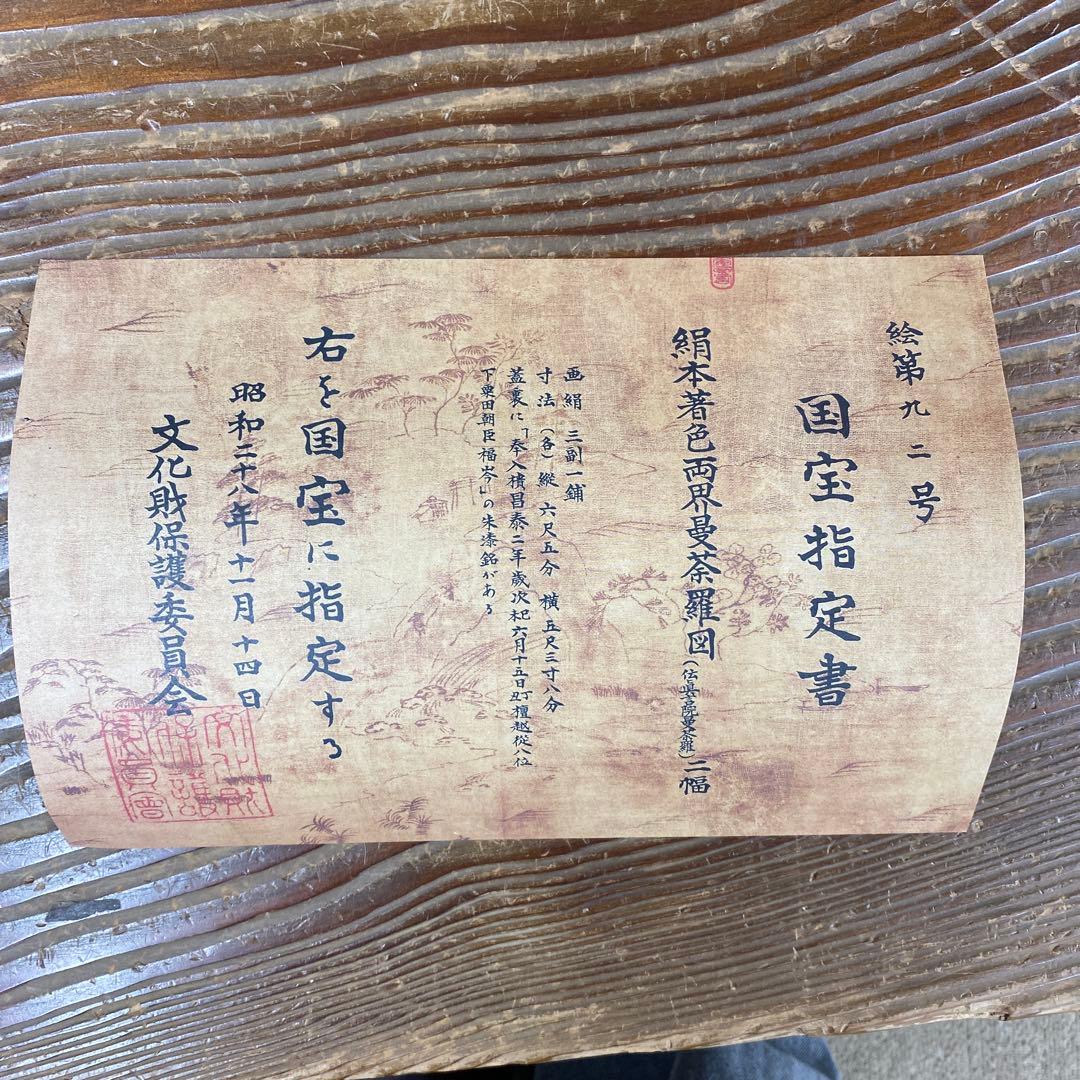 絵第九二号
国宝指定書
絹本著色両界曼荼羅図(伝真言院曼荼羅)二幅
画絹 三副一鋪
寸法(各)縦 六尺五分 横 五尺三寸八分
蓋裏に「奉入積昌泰二年歳次杞六月十五日丑丁檀越従八位
下粟田朝臣福岑」の朱漆銘がある
右を国宝に指定する
昭和二十八年十一月十四日
文化財保護委員会